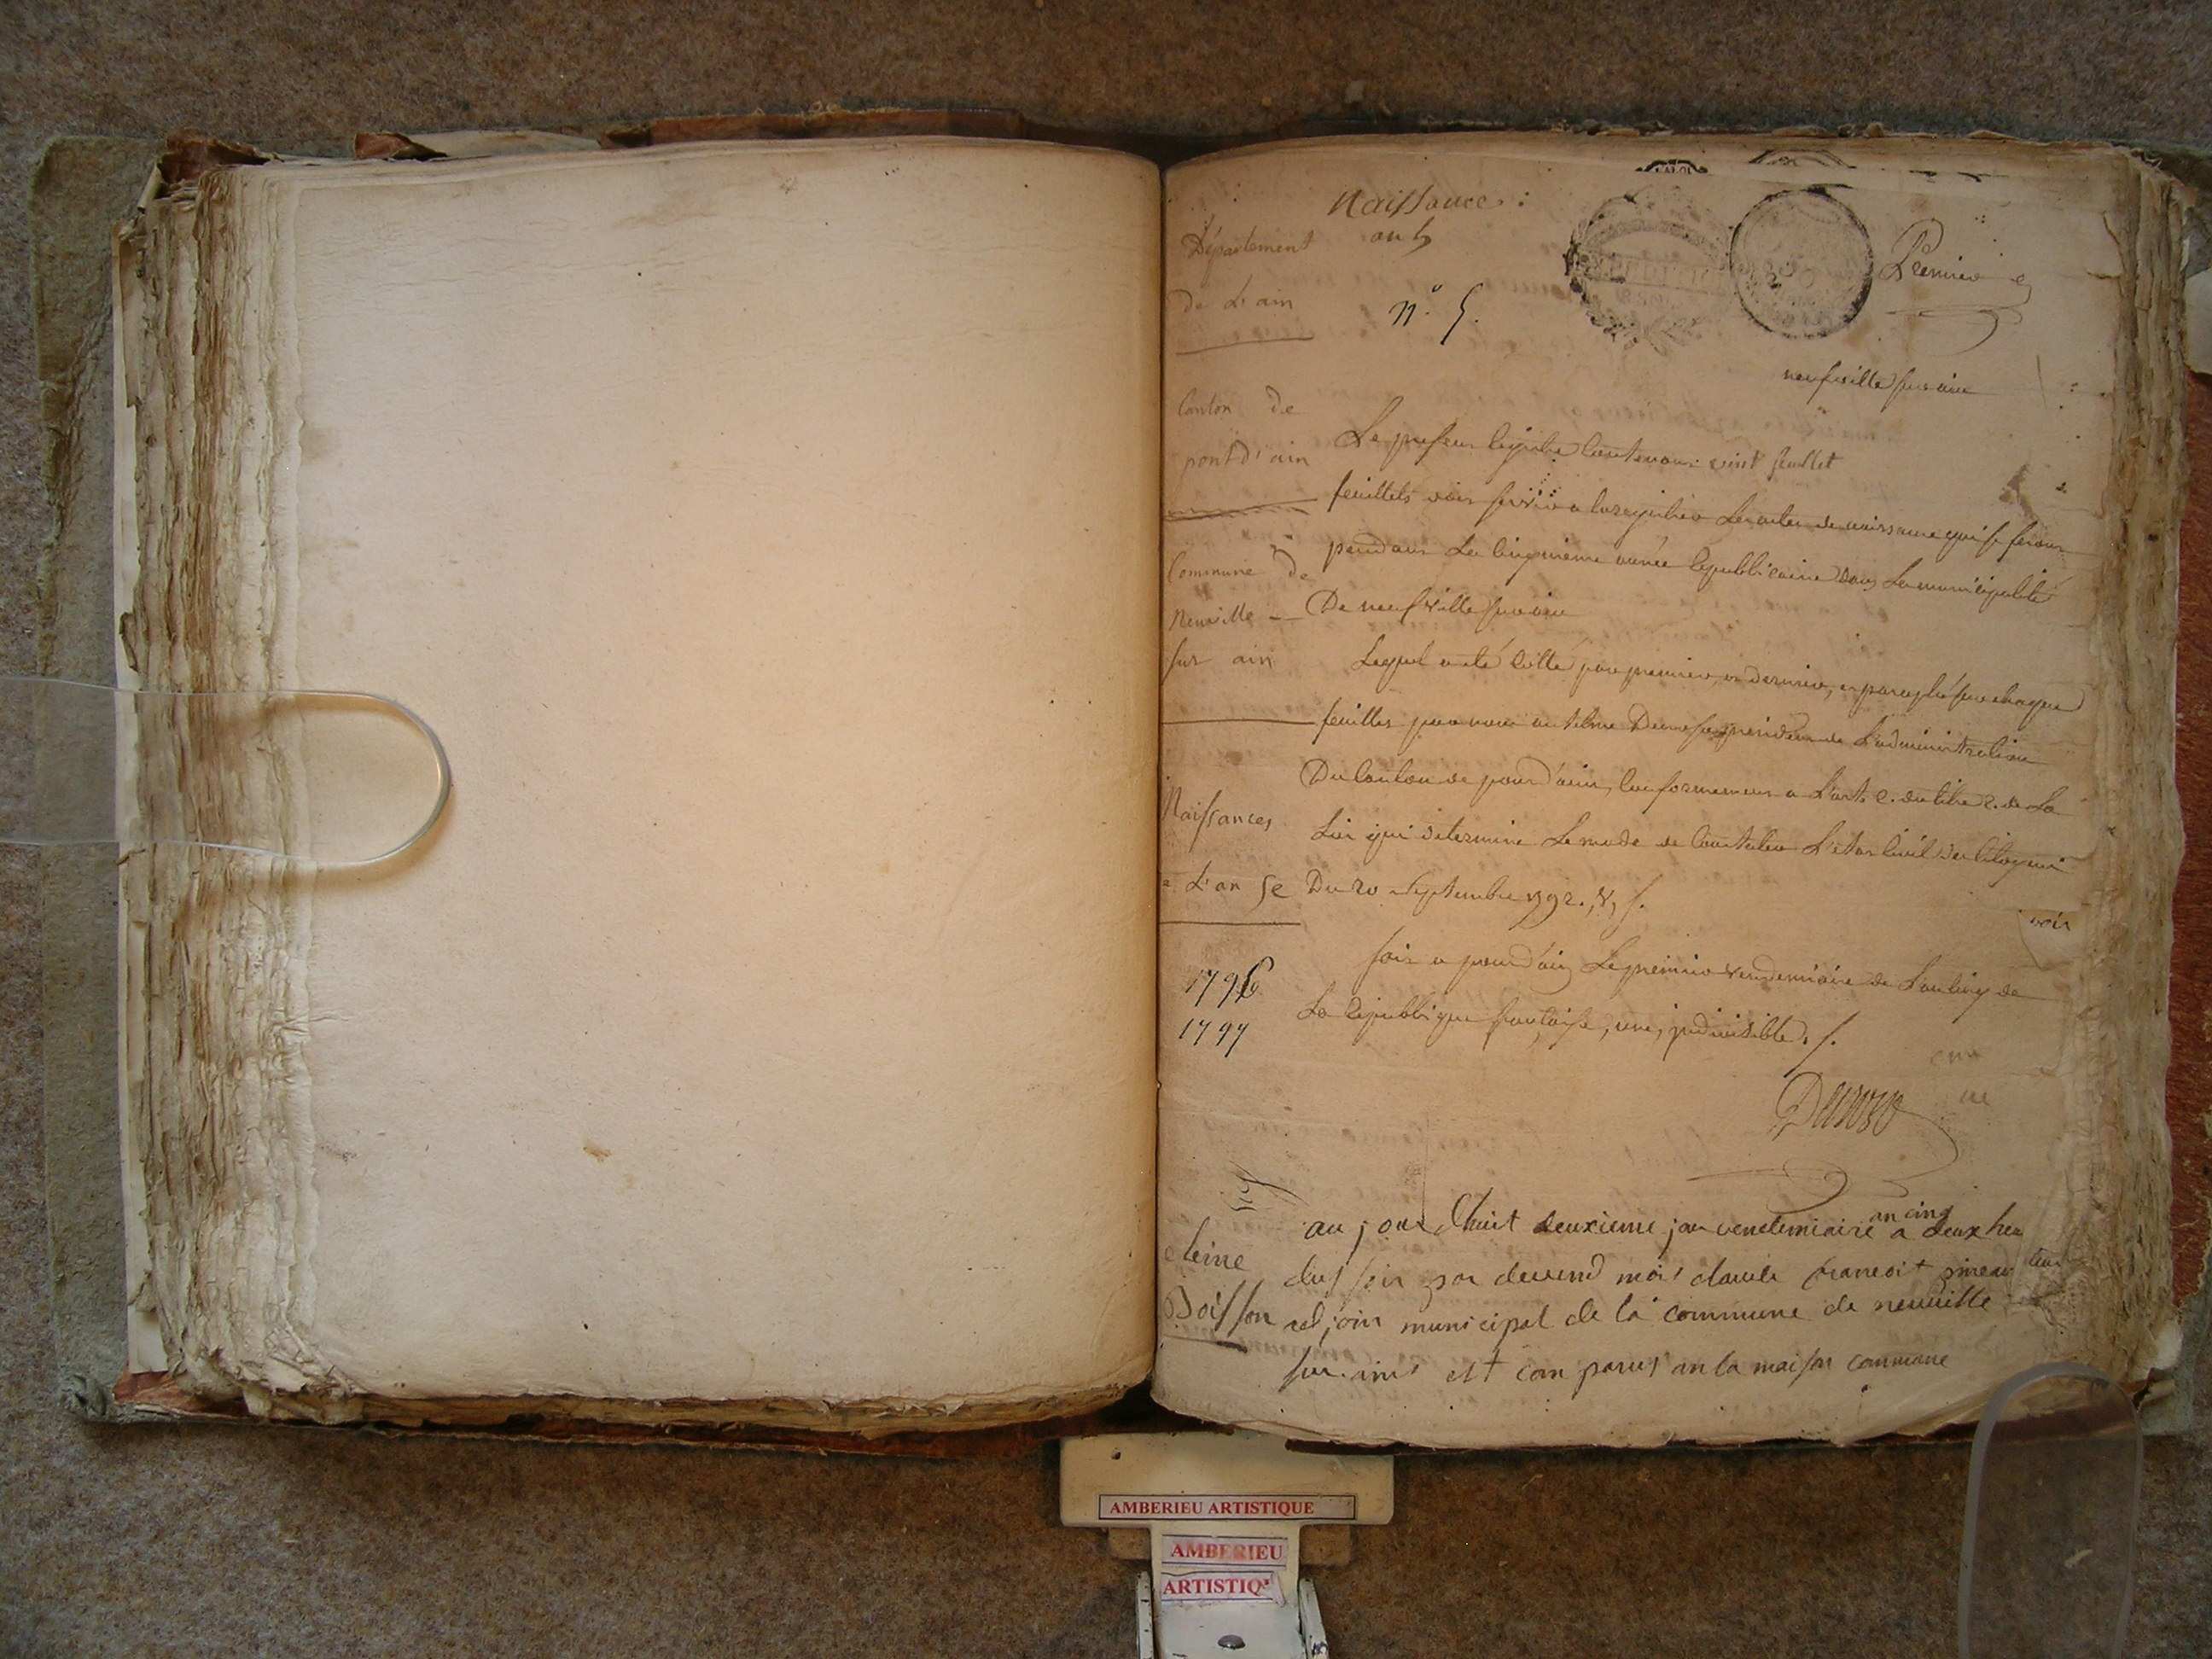 Naissance :
an 5
n.° 5.
Premier
Département
De L'ain
neufville sur ain
Canton de
pont d'ain
Le present registre Contenant vint feuillet
feuillets doit servir a enregistrer Les actes de naissance qui se feront
pendant La Cinquieme année republicaine dans La municipalité
De neufville sur ain
Commune de
Neuville
sur ain
Lequel a eté Cotté par premier, et dernier, et paraphé sur chaque
feuillet par nous president de L'administration
Du Canton de pont d'ain, Conformement a L'art. 2. du titre 2. de La
Loi qui determine Le mode de Constater L'etat Civil des Citoyens
Du 20 Septembre 1792.
Naissances
L'an 5e
1796
1797
fait a pont d'ain Le premier vendemiaire de L'an cinq de
La republique française, une, indivisible.
voir
au jour dhuit deuxieme jour vendemiaire an cinq a deux heu
du soir par devend moi claude francoit
adjoin municipal de la commune de neuville
sur ain est com parus an la maison commune
Boisson
AMBERIEU ARTISTIQUE
AMBERIEU
ARTISTIQ